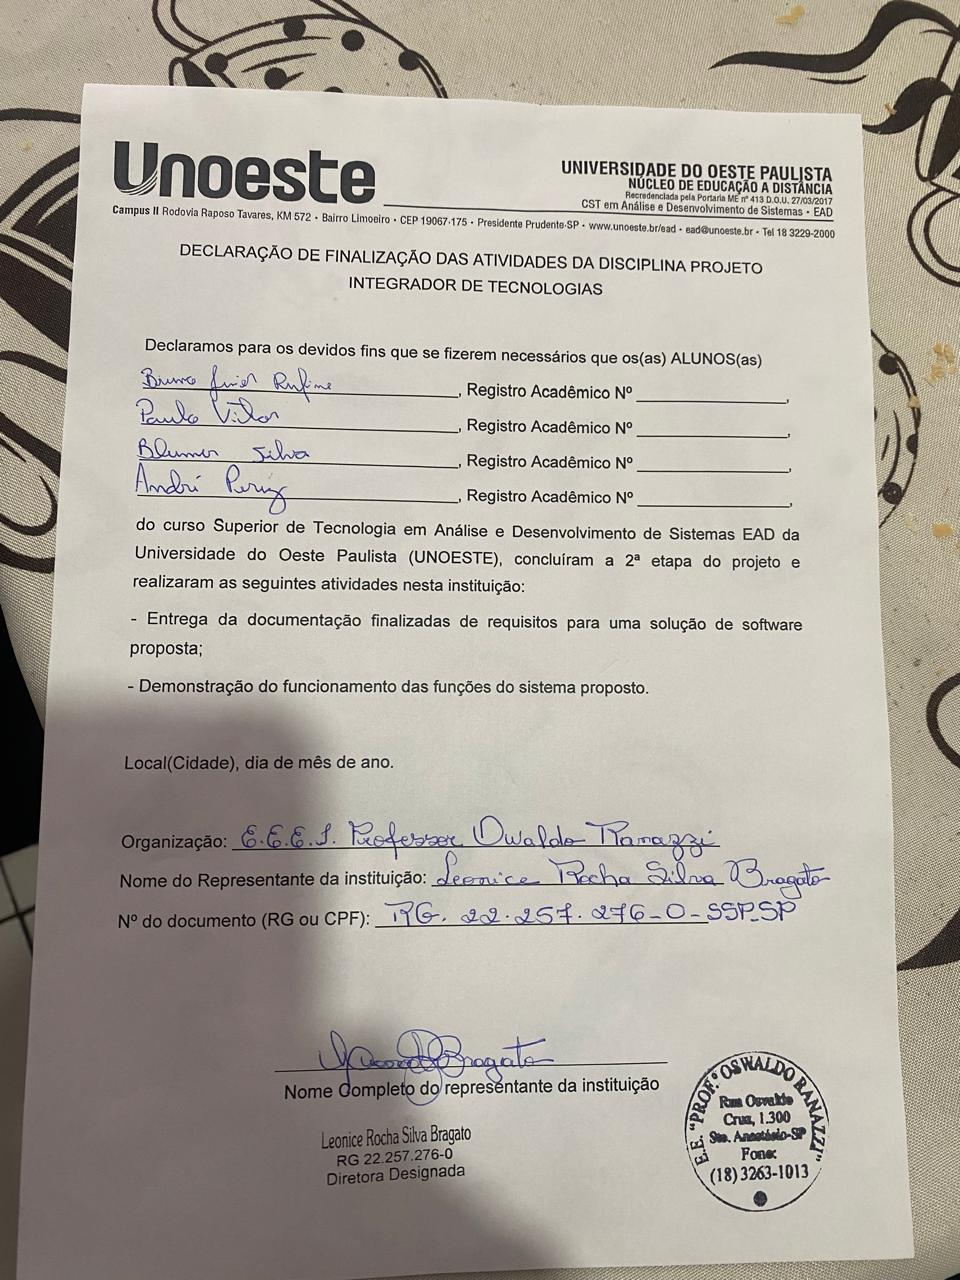 Unoeste
UNIVERSIDADE DO OESTE PAULISTA
NÚCLEO DE EDUCAÇÃO A DISTÂNCIA
Recredenciada pela Portaria ME nº 413 D.O.U. 27/03/2017
CST em Análise e Desenvolvimento de Sistemas • EAD
Campus II Rodovia Raposo Tavares, KM 572 • Bairro Limoeiro • CEP 19067-175 • Presidente Prudente-SP • www.unoeste.br/ead • ead@unoeste.br • Tel 18 3229-2000
DECLARAÇÃO DE FINALIZAÇÃO DAS ATIVIDADES DA DISCIPLINA PROJETO
INTEGRADOR DE TECNOLOGIAS
Declaramos para os devidos fins que se fizerem necessários que os(as) ALUNOS(as)
Bruno Rufine, Registro Acadêmico Nº ,
Paulo Vitor, Registro Acadêmico Nº ,
Silva, Registro Acadêmico Nº ,
André, Registro Acadêmico Nº ,
do curso Superior de Tecnologia em Análise e Desenvolvimento de Sistemas EAD da
Universidade do Oeste Paulista (UNOESTE), concluíram a 2ª etapa do projeto e
realizaram as seguintes atividades nesta instituição:
- Entrega da documentação finalizadas de requisitos para uma solução de software
proposta;
- Demonstração do funcionamento das funções do sistema proposto.
Local(Cidade), dia de mês de ano.
Organização: E.E.E.I. Professor Owaldo Ranazzi
Nome do Representante da instituição: Leonice Rocha Silva Bragato
Nº do documento (RG ou CPF): RG. 22.257.276-0-SSP-SP
Bragato
Nome Completo do representante da instituição
Leonice Rocha Silva Bragato
RG 22.257.276-0
Diretora Designada
E.E. "PROF. OSWALDO RANAZZI"
Rua Osvaldo
Cruz, 1.300
Sto. Anastácio-SP
Fone:
(18) 3263-1013